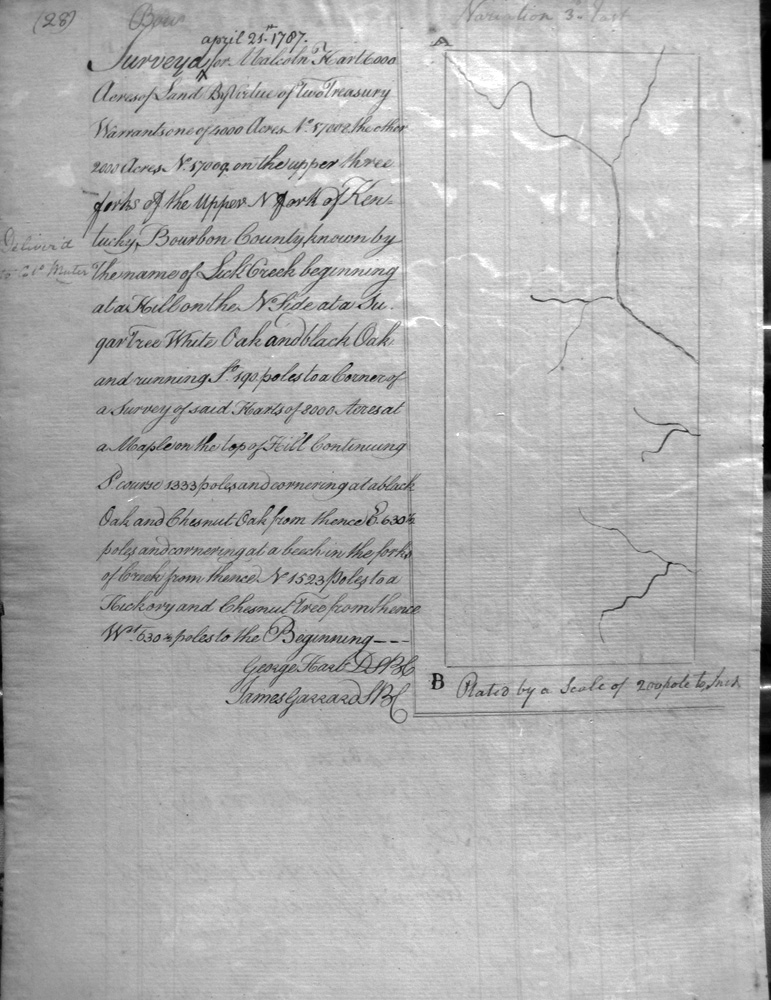 (28) Bour
Variation 3° East
april 21st 1787.
Surveyd for Malcolm Hart 6000
Acres of Land By Virtue of two Treasury
Warrants one of 4000 Acres No. 17008 the other
2000 Acres No. 17009 on the upper three
forks of the Upper N fork of Ken-
tucky, Bourbon County known by
the name of Lick Creek beginning
at a Hill on the N Side at a Su-
gar Tree White Oak and black Oak
and running So. 190 poles to a Corner of
a Survey of said Harts of 8000 Acres at
a Maple on the top of Hill Continuing
So course 1333 poles and cornering at a black
Oak and Chesnut Oak from thence E 630½
poles and cornering at a beech in the forks
of Creek from thence N 1523 poles to a
Hickory and Chesnut Tree from thence
Wt. 630½ poles to the Beginning ---
George Hart D S B C
James Garrard S B C
Deliver'd
to
A
B Plated by a Scale of 200 pole to Inch